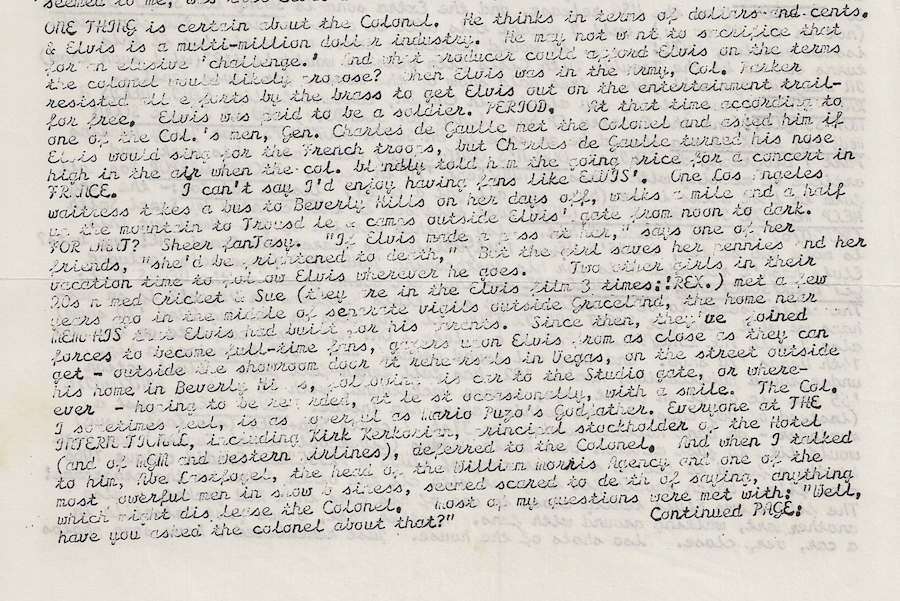 seemed to me, was
ONE THING is certain about the Colonel. He thinks in terms of dollars-and-cents.
& Elvis is a multi-million dollar industry. He may not want to sacrifice that
for an elusive 'challenge.' And what producer could afford Elvis on the terms
the colonel would likely propose? When Elvis was in the Army, Col. Parker
resisted all efforts by the brass to get Elvis out on the entertainment trail-
for free. Elvis was paid to be a soldier. PERIOD. At that time according to
one of the Col.'s men, Gen. Charles de Gaulle met the Colonel and asked him if
Elvis would sing for the French troops, but Charles de Gaulle turned his nose
high in the air when the col. blandly told him the going price for a concert in
FRANCE. I can't say I'd enjoy having fans like ELVIS'. One Los Angeles
waitress takes a bus to Beverly Hills on her days off, walks a mile and a half
up the mountain to Trousdale & camps outside Elvis' gate from noon to dark.
FOR WHAT? Sheer fanTasy. "If Elvis made a pass at her," says one of her
friends, "she'd be frightened to death," But the girl saves her pennies and her
vacation time to follow Elvis wherever he goes. Two other girls in their
20s named Cricket & Sue (they are in the Elvis film 3 times!!REX.) met a few
years ago in the middle of separate vigils outside Graceland, the home near
MEMPHIS that Elvis had built for his parents. Since then, they've joined
forces to become full-time fans, gazers upon Elvis from as close as they can
get - outside the showroom door at rehearsals in Vegas, on the street outside
his home in Beverly Hills, following his car to the Studio gate, or where-
ever - hoping to be rewarded, at least occasionally, with a smile. The Col.
I sometimes feel, is as powerful as Mario Puzo's Godfather. Everyone at THE
INTERNATIONAL, including Kirk Kerkorian, principal stockholder of the Hotel
(and of MGM and Western Airlines), deferred to the Colonel. And when I talked
to him, Abe Lastfogel, the head of the William Morris Agency and one of the
most powerful men in show business, seemed scared to death of saying, anything
which might displease the Colonel. Most of my questions were met with: "Well,
have you asked the colonel about that?" Continued PAGE: